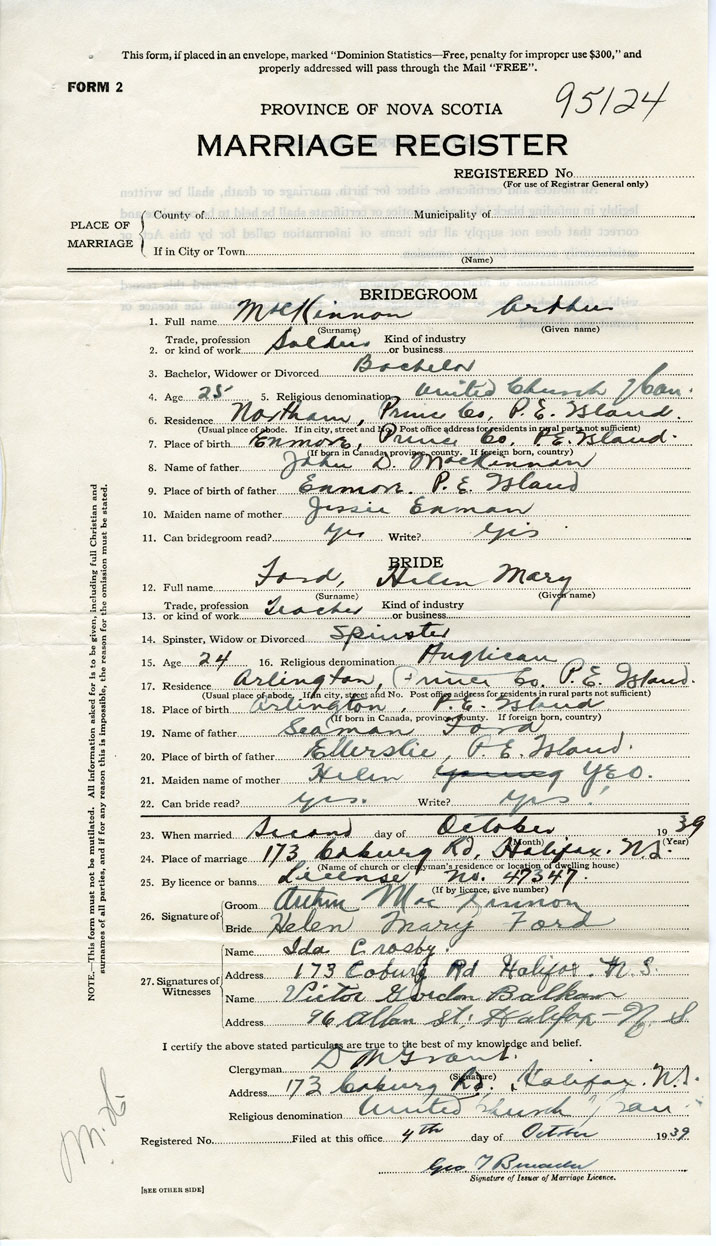 This form, if placed in an envelope, marked "Dominion Statistics—Free, penalty for improper use $300," and
properly addressed will pass through the Mail "FREE".
FORM 2
95124
PROVINCE OF NOVA SCOTIA
MARRIAGE REGISTER
REGISTERED No.
(For use of Registrar General only)
PLACE OF MARRIAGE
County of Municipality of
If in City or Town
(Name)
BRIDEGROOM
1. Full name MacKinnon Arthur
(Surname) (Given name)
2. Trade, profession or kind of work Soldier Kind of industry or business
3. Bachelor, Widower or Divorced Bachelor
4. Age 25 5. Religious denomination United Church of Can.
6. Residence Northam, Prince Co, P.E. Island.
(Usual place of abode. If in city, street and No. Post office address for residents in rural parts not sufficient)
7. Place of birth Enmore, Prince Co, P.E. Island.
(If born in Canada, province, county. If foreign born, country)
8. Name of father John D. MacKinnon
9. Place of birth of father Enmore. P.E. Island
10. Maiden name of mother Jessie Enman
11. Can bridegroom read? Yes Write? Yes
BRIDE
12. Full name Ford, Helen Mary
(Surname) (Given name)
13. Trade, profession or kind of work Teacher Kind of industry or business
14. Spinster, Widow or Divorced Spinster
15. Age 24 16. Religious denomination Anglican
17. Residence Arlington, Prince Co. P.E. Island.
(Usual place of abode. If in city, street and No. Post office address for residents in rural parts not sufficient)
18. Place of birth Arlington, P.E. Island
(If born in Canada, province, county. If foreign born, country)
19. Name of father Seaman Ford
20. Place of birth of father Ellerslie, P.E. Island.
21. Maiden name of mother Helen Young YEO.
22. Can bride read? Yes. Write? Yes.
23. When married Second day of October 1939
(Month) (Year)
24. Place of marriage 173 Coburg Rd, Halifax. N.S.
(Name of church or clergyman's residence or location of dwelling house)
25. By licence or banns. License No. 47347.
(If by licence, give number)
26. Signature of
Groom Arthur MacKinnon
Bride Helen Mary Ford
27. Signatures of Witnesses
Name Ida Crosby.
Address 173 Coburg Rd Halifax. N.S.
Name Victor Gordon Balkam
Address 96 Allan St. Halifax-N.S
I certify the above stated particulars are true to the best of my knowledge and belief.
Clergyman D M Grant.
(Signature)
Address 173 Coburg Rd. Halifax. N.S.
Religious denomination United Church of Can.
Registered No. Filed at this office 4th day of October 1939
Geo
Signature of Issuer of Marriage Licence.
[SEE OTHER SIDE]
NOTE.—This form must not be mutilated. All information asked for is to be given, including full Christian and
surnames of all parties, and if for any reason this is impossible, the reason for the omission must be stated.